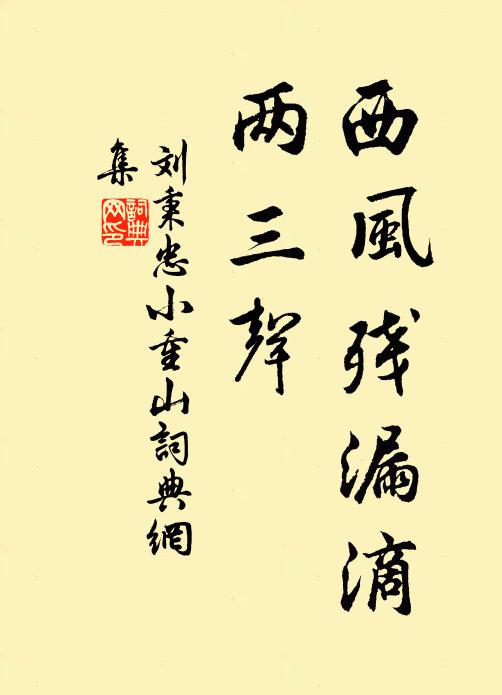 西風残漏滴
两三聲
刘秉忠小重山詞典網
集
詞典
网印